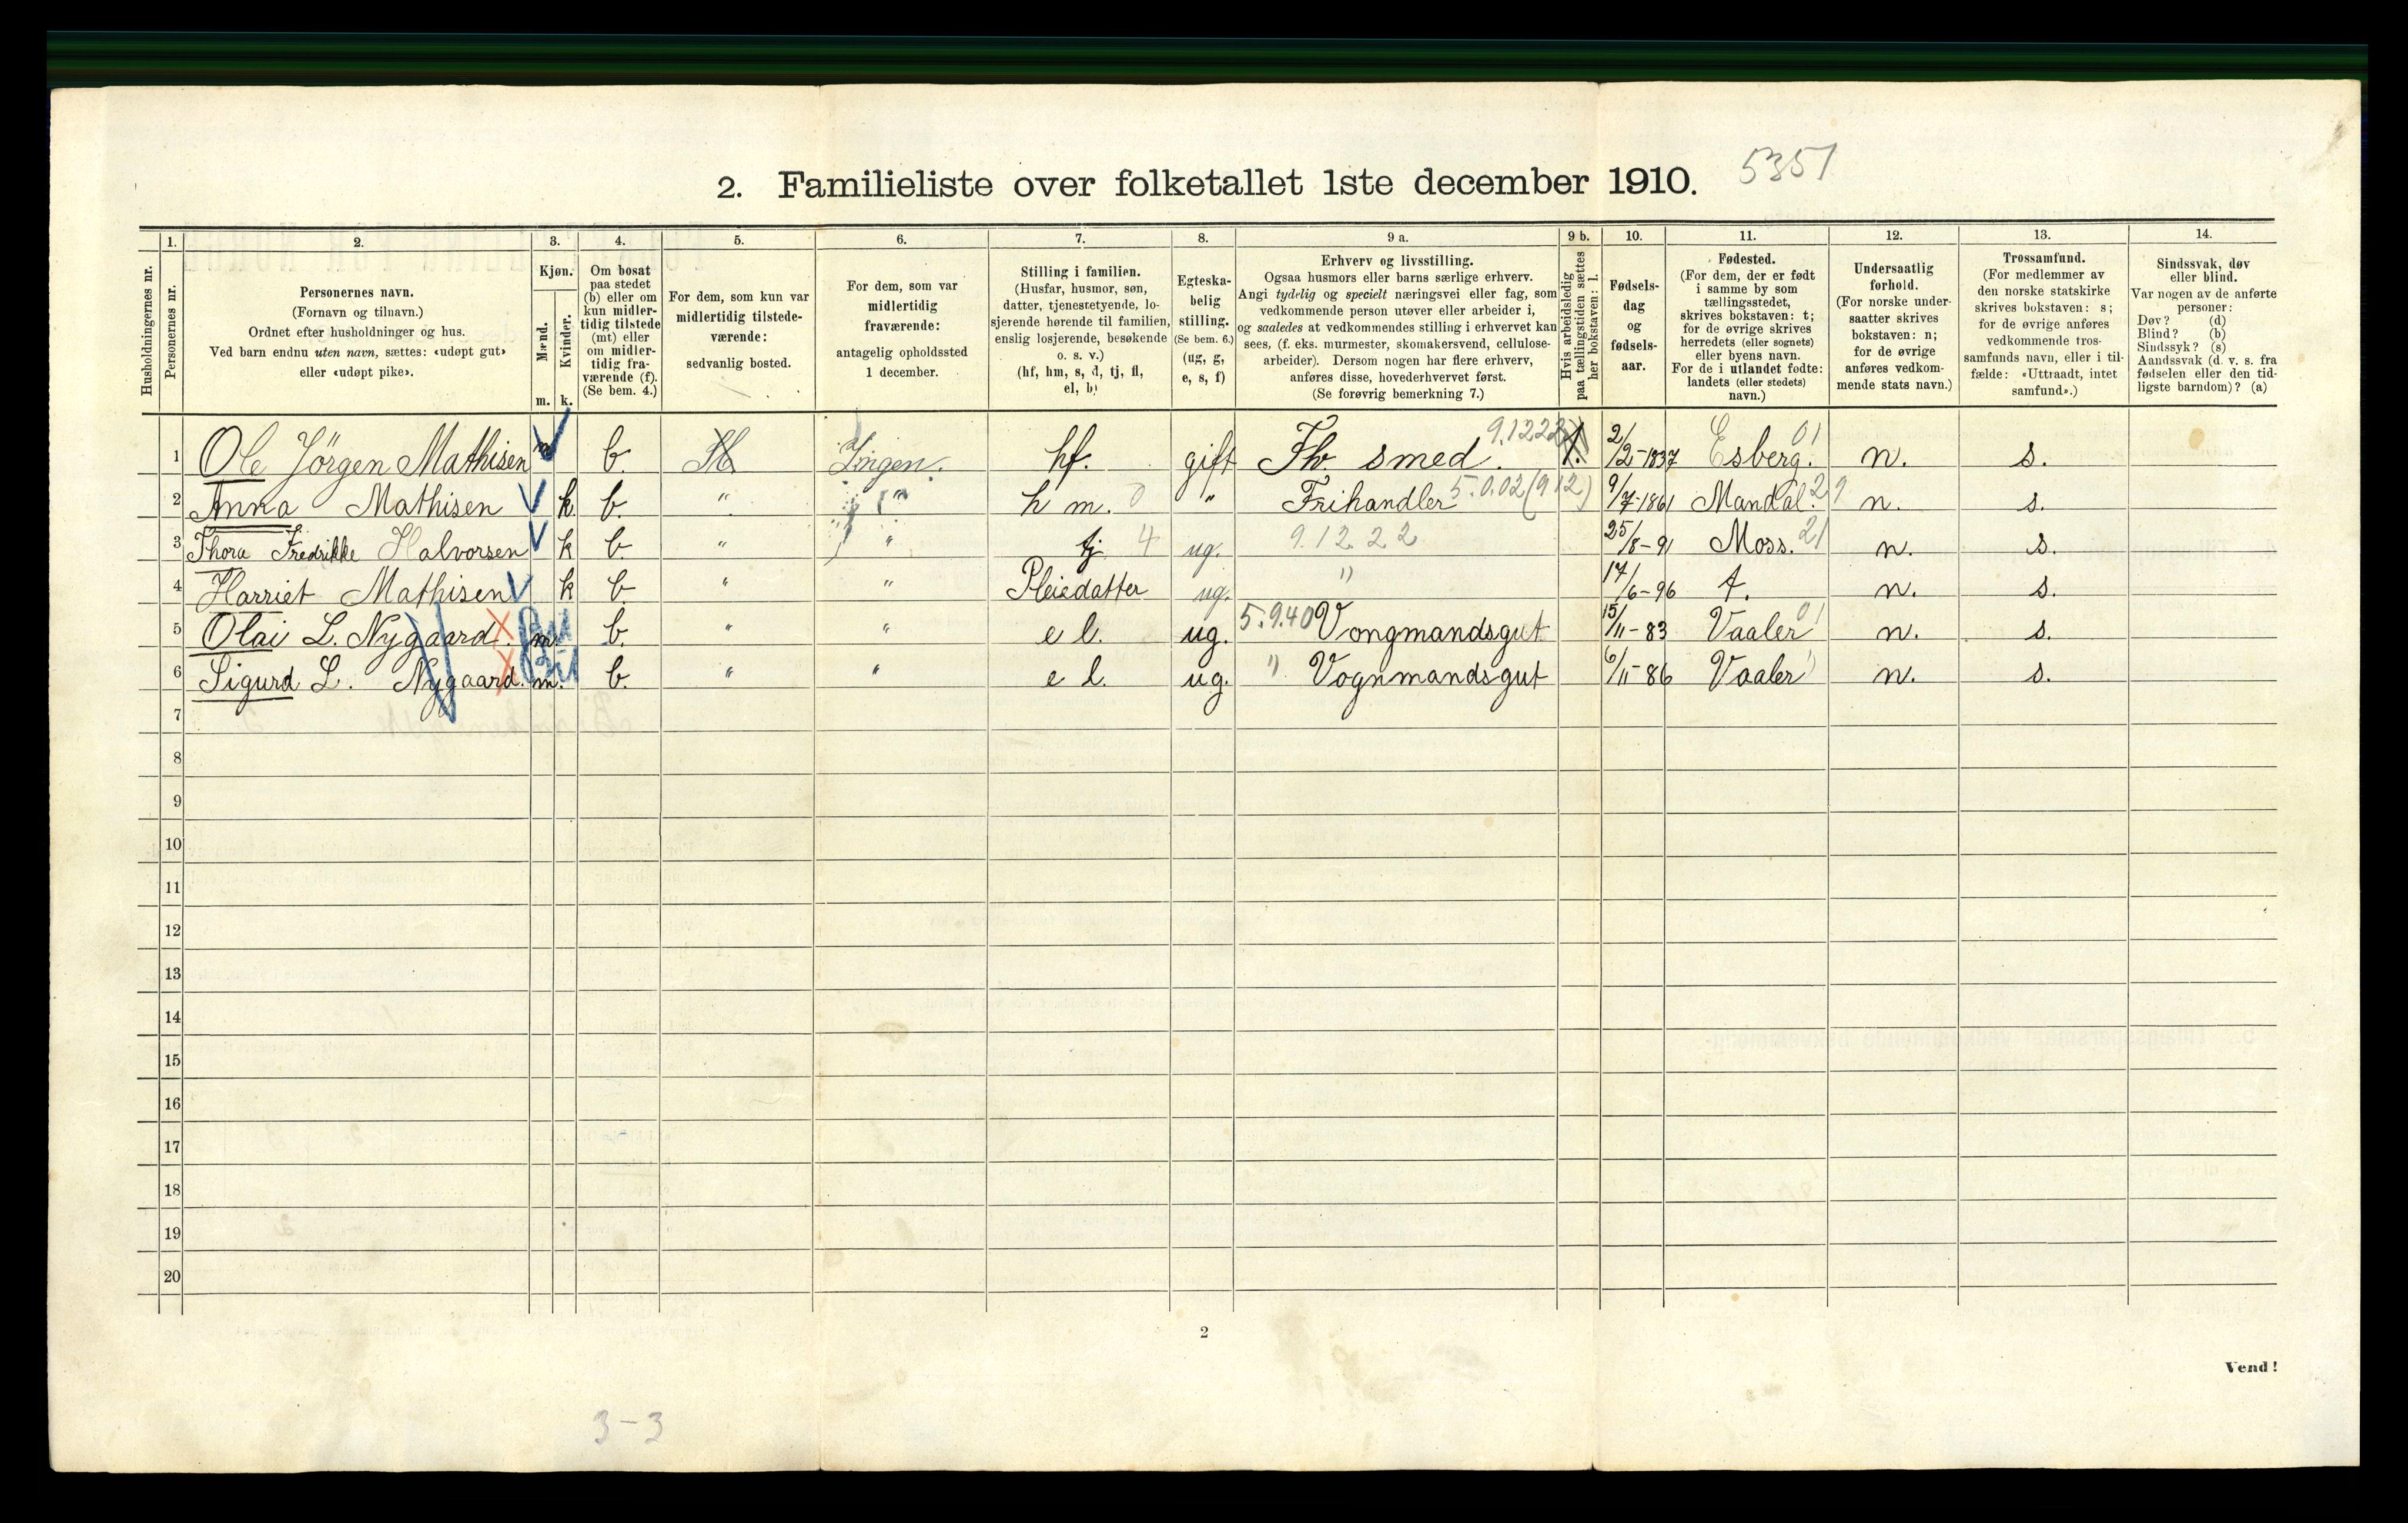 2. Familieliste over folketallet 1ste december 1910. 5351
Husholdningernes nr.
1. Personernes nr.
2. Personernes navn.
(Fornavn og tilnavn.)
Ordnet efter husholdninger og hus.
Ved barn endnu uten navn, sættes: «udøpt gut»
eller «udøpt pike».
3. Kjøn.
Mænd. m.
Kvinder. k.
4. Om bosat
paa stedet
(b) eller om
kun midler-
tidig tilstede
(mt) eller
om midler-
tidig fra-
værende (f).
(Se bem. 4.)
5. For dem, som kun var
midlertidig tilstede-
værende:
sedvanlig bosted.
6. For dem, som var
midlertidig
fraværende:
antagelig opholdssted
1 december.
7. Stilling i familien.
(Husfar, husmor, søn,
datter, tjenestetyende, lo-
sjerende hørende til familien,
enslig losjerende, besøkende
o. s. v.)
(hf, hm, s, d, tj, fl,
el, b)
8. Egteska-
belig
stilling.
(Se bem. 6.)
(ug, g,
e, s, f)
9 a. Erhverv og livsstilling.
Ogsaa husmors eller barns særlige erhverv.
Angi tydelig og specielt næringsvei eller fag, som
vedkommende person utøver eller arbeider i,
og saaledes at vedkommendes stilling i erhvervet kan
sees, (f. eks. murmester, skomakersvend, cellulose-
arbeider). Dersom nogen har flere erhverv,
anføres disse, hovederhvervet først.
(Se forøvrig bemerkning 7.)
9 b. Hvis arbeidsledig
paa tællingstiden sættes
her bokstaven: l.
10. Fødsels-
dag
og
fødsels-
aar.
11. Fødested.
(For dem, der er født
i samme by som
tællingsstedet,
skrives bokstaven: t;
for de øvrige skrives
herredets (eller sognets)
eller byens navn.
For de i utlandet fødte:
landets (eller stedets)
navn.)
12. Undersaatlig
forhold.
(For norske under-
saatter skrives
bokstaven: n;
for de øvrige
anføres vedkom-
mende stats navn.)
13. Trossamfund.
(For medlemmer av
den norske statskirke
skrives bokstaven: s;
for de øvrige anføres
vedkommende tros-
samfunds navn, eller i til-
fælde: «Uttraadt, intet
samfund».)
14. Sindssvak, døv
eller blind.
Var nogen av de anførte
personer:
Døv? (d)
Blind? (b)
Sindssyk? (s)
Aandssvak (d. v. s. fra
fødselen eller den tid-
ligste barndom)? (a)
1 Ole Jörgen Mathisen m b. Ingen. hf. gift Fb smed. 9.1222 2/2-1837 Esberg. 01 n. s.
2 Anna Mathisen k. b. " " h m. 0 " Frihandler 5.0.02 (912) 9/7-1861 Mandal. 29 n. s.
3 Thora Fredrikke Halvorsen k b. " " tj. 4 ug. 9.12.22 25/8-91 Moss. 21 n. s.
4 Harriet Mathisen k b. " " Pleiedatter ug. " 17/6-96 t. n. s.
5 Olai L. Nygaard. m. b. " " e l. ug. 5.9.40 Vongmandsgut 15/11-83 Vaaler 01 n. s.
6 Sigurd L. Nygaard. m. b. " " e l. ug. " Vognmandsgut 6/11-86 Vaaler " n. s.
7
8
9
10
11
12
13
14
15
16
17
18
19
20
2
Vend!
3-3